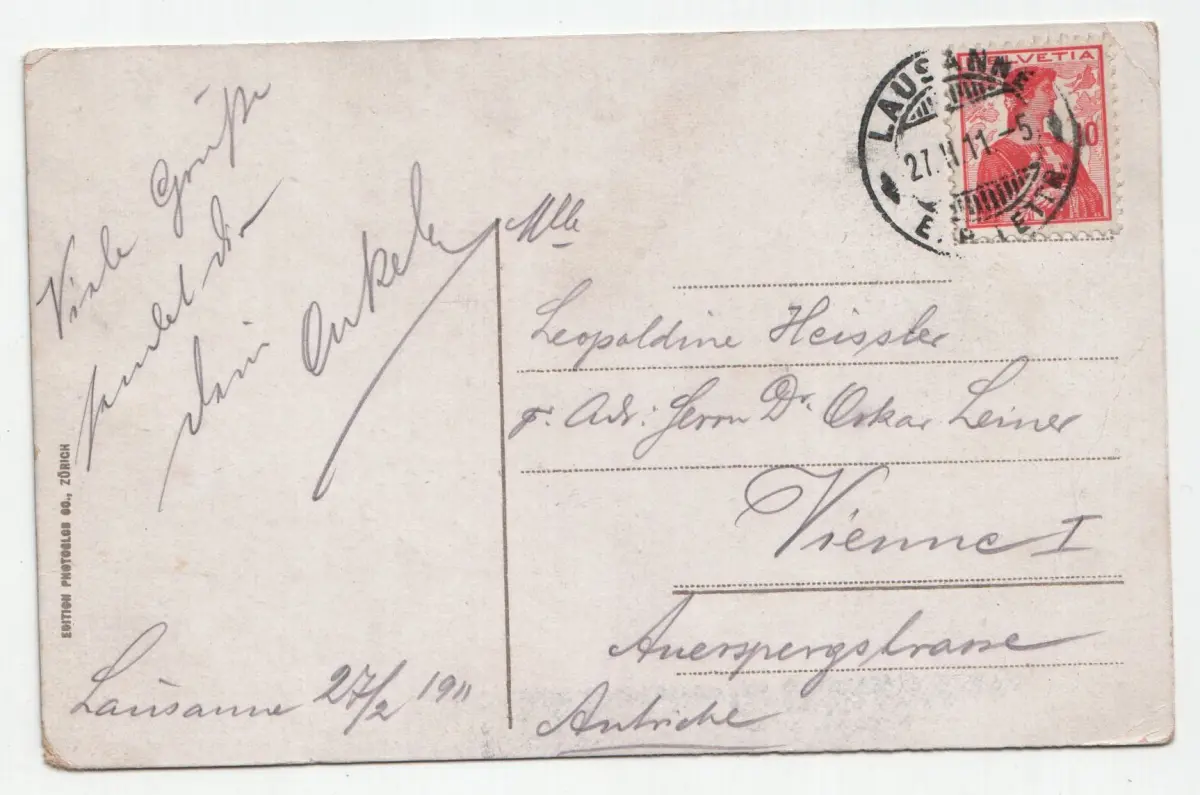 Viele Grüße
sendet dir
dein Onkel
Lausanne 27/2 1911
EDITION PHOTOGLOB CO., ZÜRICH
HELVETIA
10
LAUSANNE
27.II.11.-5
Mlle
Leopoldine Heissler
p. Adr: Herrn Dr. Oskar Leiner
Vienne I
Auerspergstrasse
Autriche